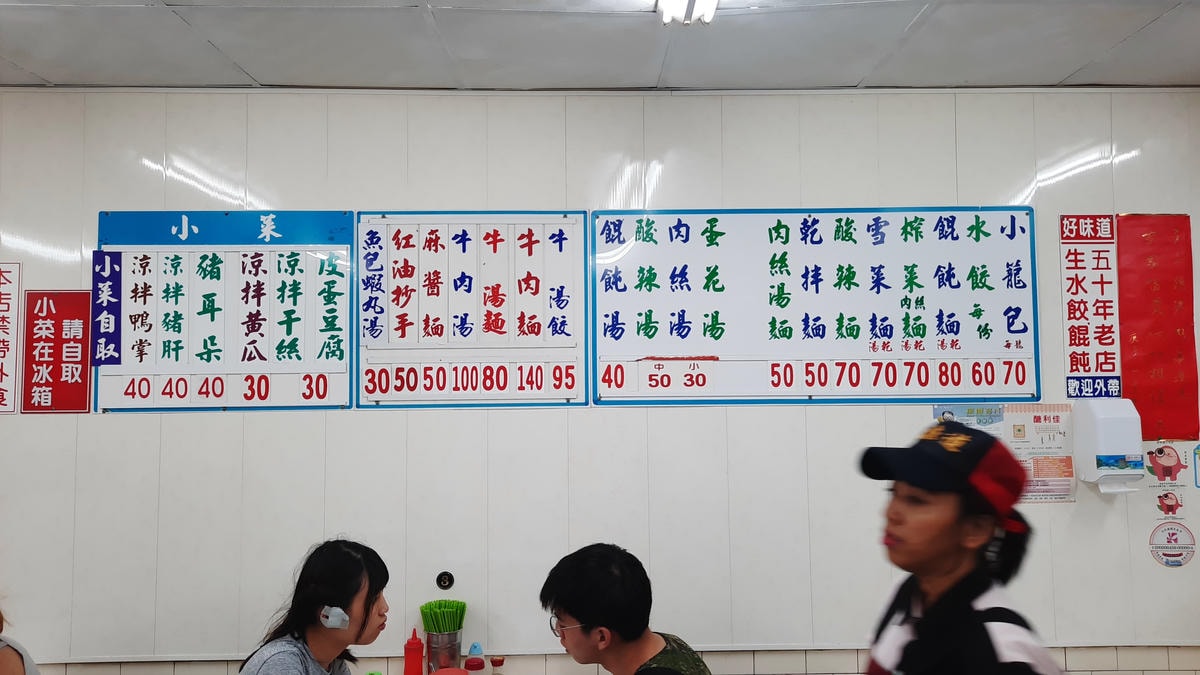 小龍包 每籠 70
水餃 每份 60
餛飩麵 湯乾 80
榨菜肉絲麵 湯乾 70
雪菜麵 湯乾 70
酸辣麵 70
乾拌麵 50
肉絲湯麵 50
蛋花湯
肉絲湯
酸辣湯
中 50
小 30
餛飩湯 40
牛湯餃 95
牛肉麵 140
牛湯麵 80
牛肉湯 100
麻醬麵 50
紅油抄手 50
魚包蝦丸湯 30
小菜
皮蛋豆腐
涼拌干絲
30
涼拌黃瓜 30
豬耳朵 40
涼拌豬肝 40
涼拌鴨掌 40
小菜自取
請自取
小菜在冰箱
好味道
五十年老店
生水餃餛飩
歡迎外帶
3